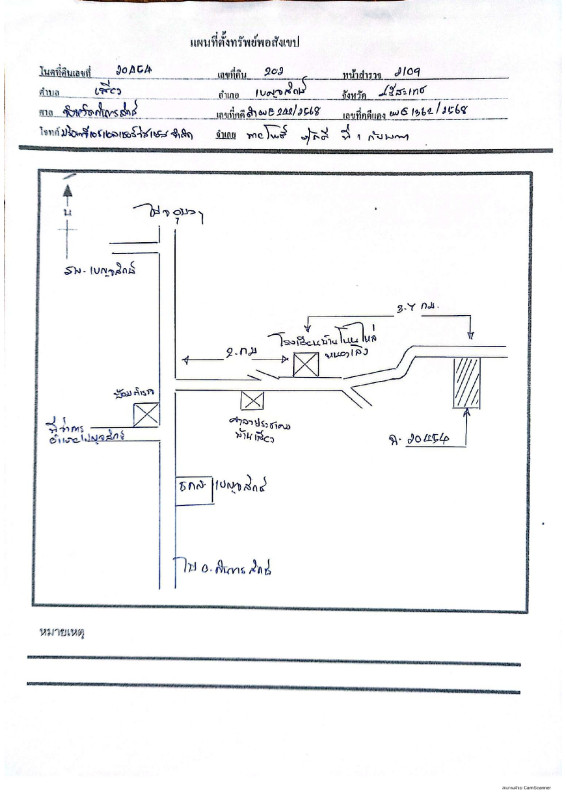 แผนที่ตั้งทรัพย์พอสังเขป
โฉนดที่ดินเลขที่ 20454 เลขที่ดิน 202 หน้าสำรวจ 2109
ตำบล เสียว อำเภอ เบญจลักษ์ จังหวัด ศรีสะเกษ
ศาล จังหวัดกันทรลักษ์ เลขที่คดี ผบE 202/2568 เลขที่คดีแดง ผบE 1362/2568
โจทก์ จำเลย ที่ 1 กับพวก
น
รพ. เบญจลักษ์
3.7 กม.
2. กม
โรงเรียนบ้านโนนใหล่
หนองเลิง
ป้อมตำรวจ
ศาลาประชาคม
บ้านเสียว
ที่ว่าการ
อำเภอเบญจลักษ์
ฉ. 20454
ธกส เบญจลักษ์
ไป อ. กันทรลักษ์
หมายเหตุ
สแกนด้วย CamScanner